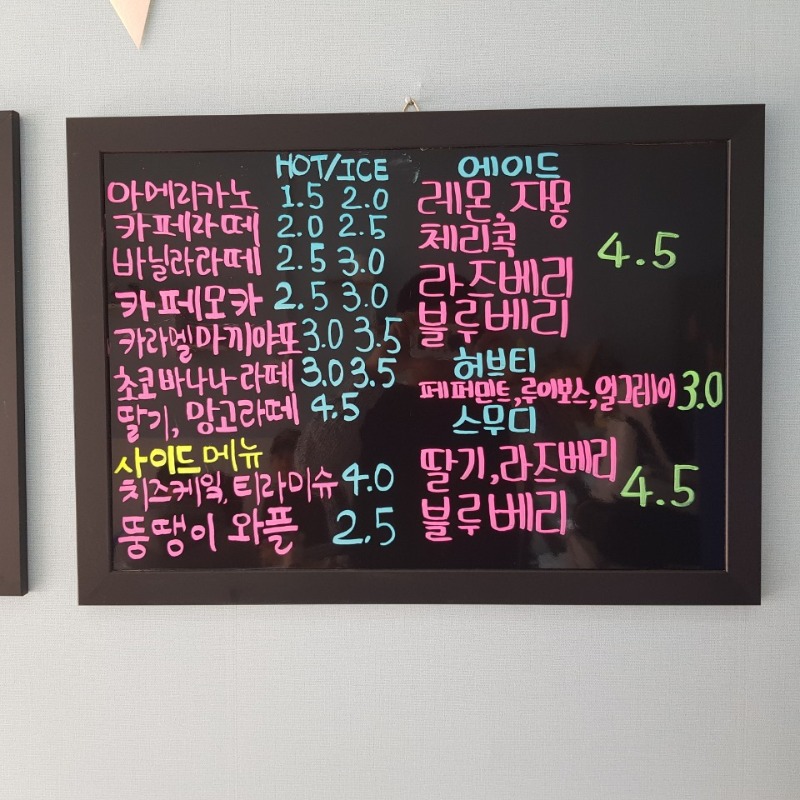 HOT/ICE
아메리카노 1.5 2.0
카페라떼 2.0 2.5
바닐라라떼 2.5 3.0
카페모카 2.5 3.0
카라멜마끼야또 3.0 3.5
초코바나나라떼 3.0 3.5
딸기, 망고라떼 4.5
사이드메뉴
치즈케잌, 티라미슈 4.0
뚱땡이 와플 2.5
에이드
레몬, 자몽
체리콕 4.5
라즈베리
블루베리
허브티
페퍼민트, 루이보스, 얼그레이 3.0
스무디
딸기, 라즈베리 4.5
블루베리